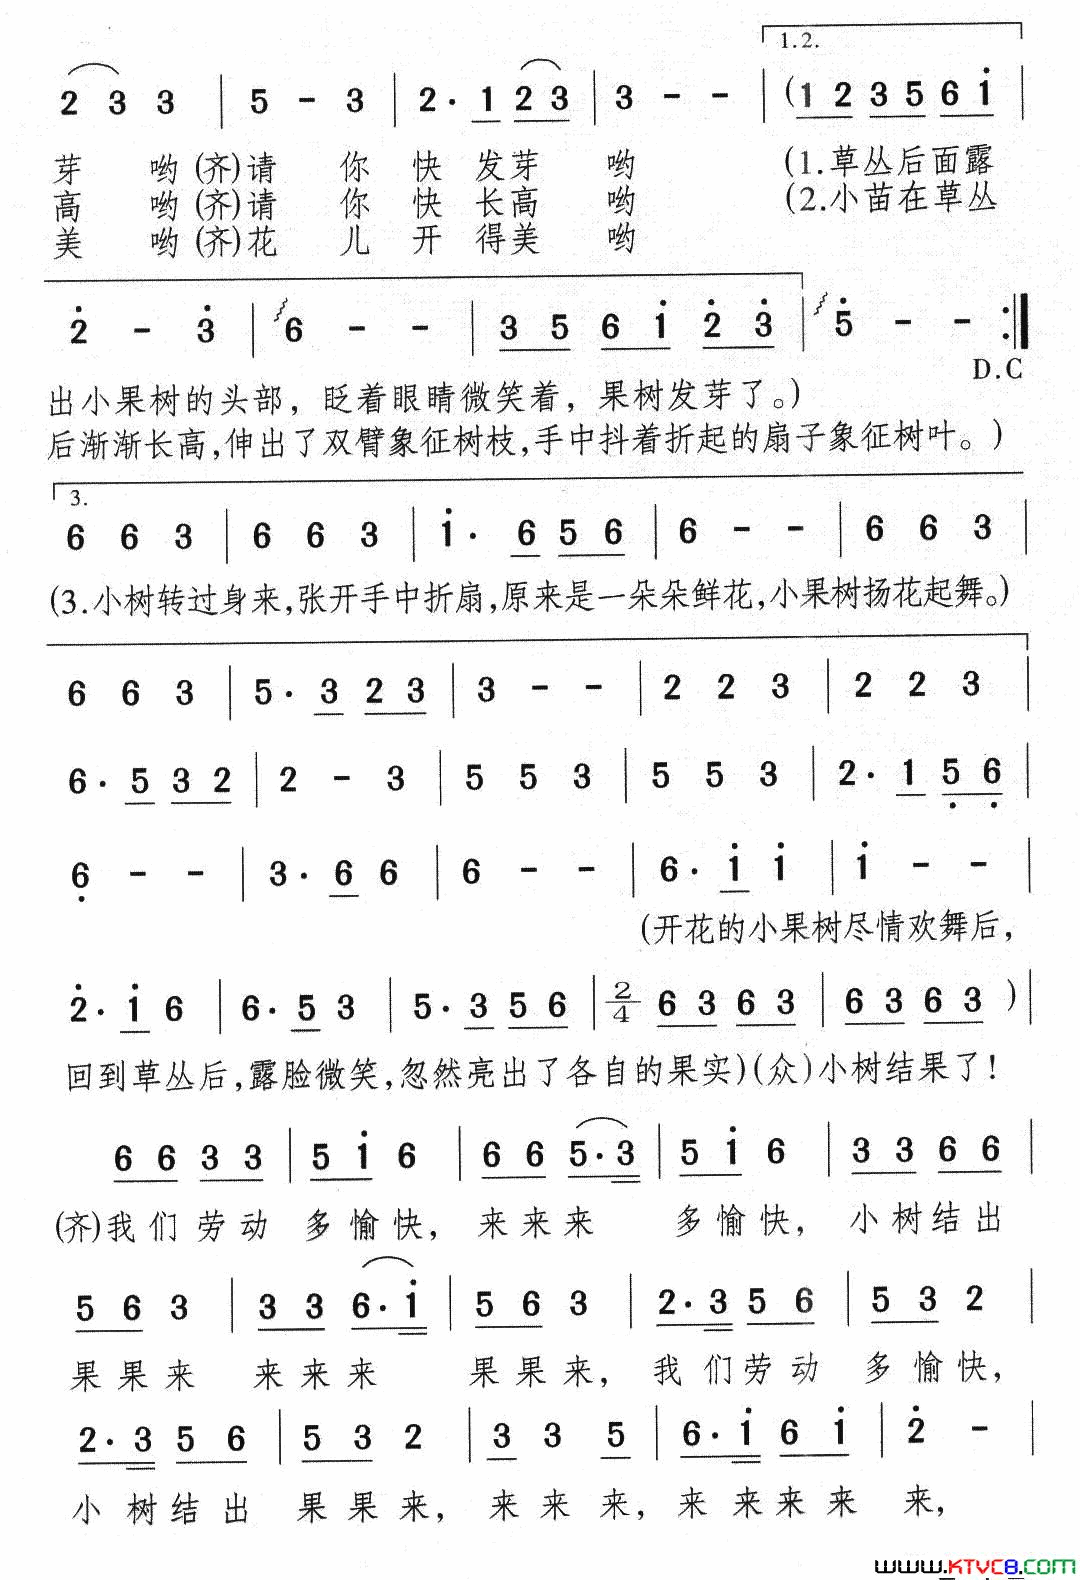 1.2.
2 3 3 | 5 - 3 | 2· 1 2 3 | 3 - - | (1 2 3 5 6 i |
芽 哟 (齐)请 你 快 发 芽 哟 (1.草丛后面露
高 哟 (齐)请 你 快 长 高 哟 (2.小苗在草丛
美 哟 (齐)花 儿 开 得 美 哟
2̇ - 3̇ | 6 - - | 3 5 6 i 2̇ 3̇ | 5̇ - - :|
D.C
出小果树的头部，眨着眼睛微笑着，果树发芽了。)
后渐渐长高,伸出了双臂象征树枝,手中抖着折起的扇子象征树叶。)
3.
6 6 3 | 6 6 3 | i· 6 5 6 | 6 - - | 6 6 3 |
(3.小树转过身来,张开手中折扇,原来是一朵朵鲜花,小果树扬花起舞。)
6 6 3 | 5· 3 2 3 | 3 - - | 2 2 3 | 2 2 3 |
6· 5 3 2 | 2 - 3 | 5 5 3 | 5 5 3 | 2· 1 5̣ 6̣ |
6̣ - - | 3· 6 6 | 6 - - | 6· i i | i - - |
(开花的小果树尽情欢舞后,
2̇· i 6 | 6· 5 3 | 5· 3 5 6 | 2/4 6 3 6 3 | 6 3 6 3 ) |
回到草丛后,露脸微笑,忽然亮出了各自的果实)(众)小树结果了!
6 6 3 3 | 5 i 6 | 6 6 5·3 | 5 i 6 | 3 3 6 6 |
(齐)我们 劳动 多愉快, 来来来 多愉快, 小树结出
5 6 3 | 3 3 6·i | 5 6 3 | 2·3 5 6 | 5 3 2 |
果果来 来来来 果果来, 我们劳动 多愉快,
2·3 5 6 | 5 3 2 | 3 3 5 | 6·i 6 i | 2̇ - |
小树结出 果果来, 来来来, 来来来来 来,
www.KTVC8.COM